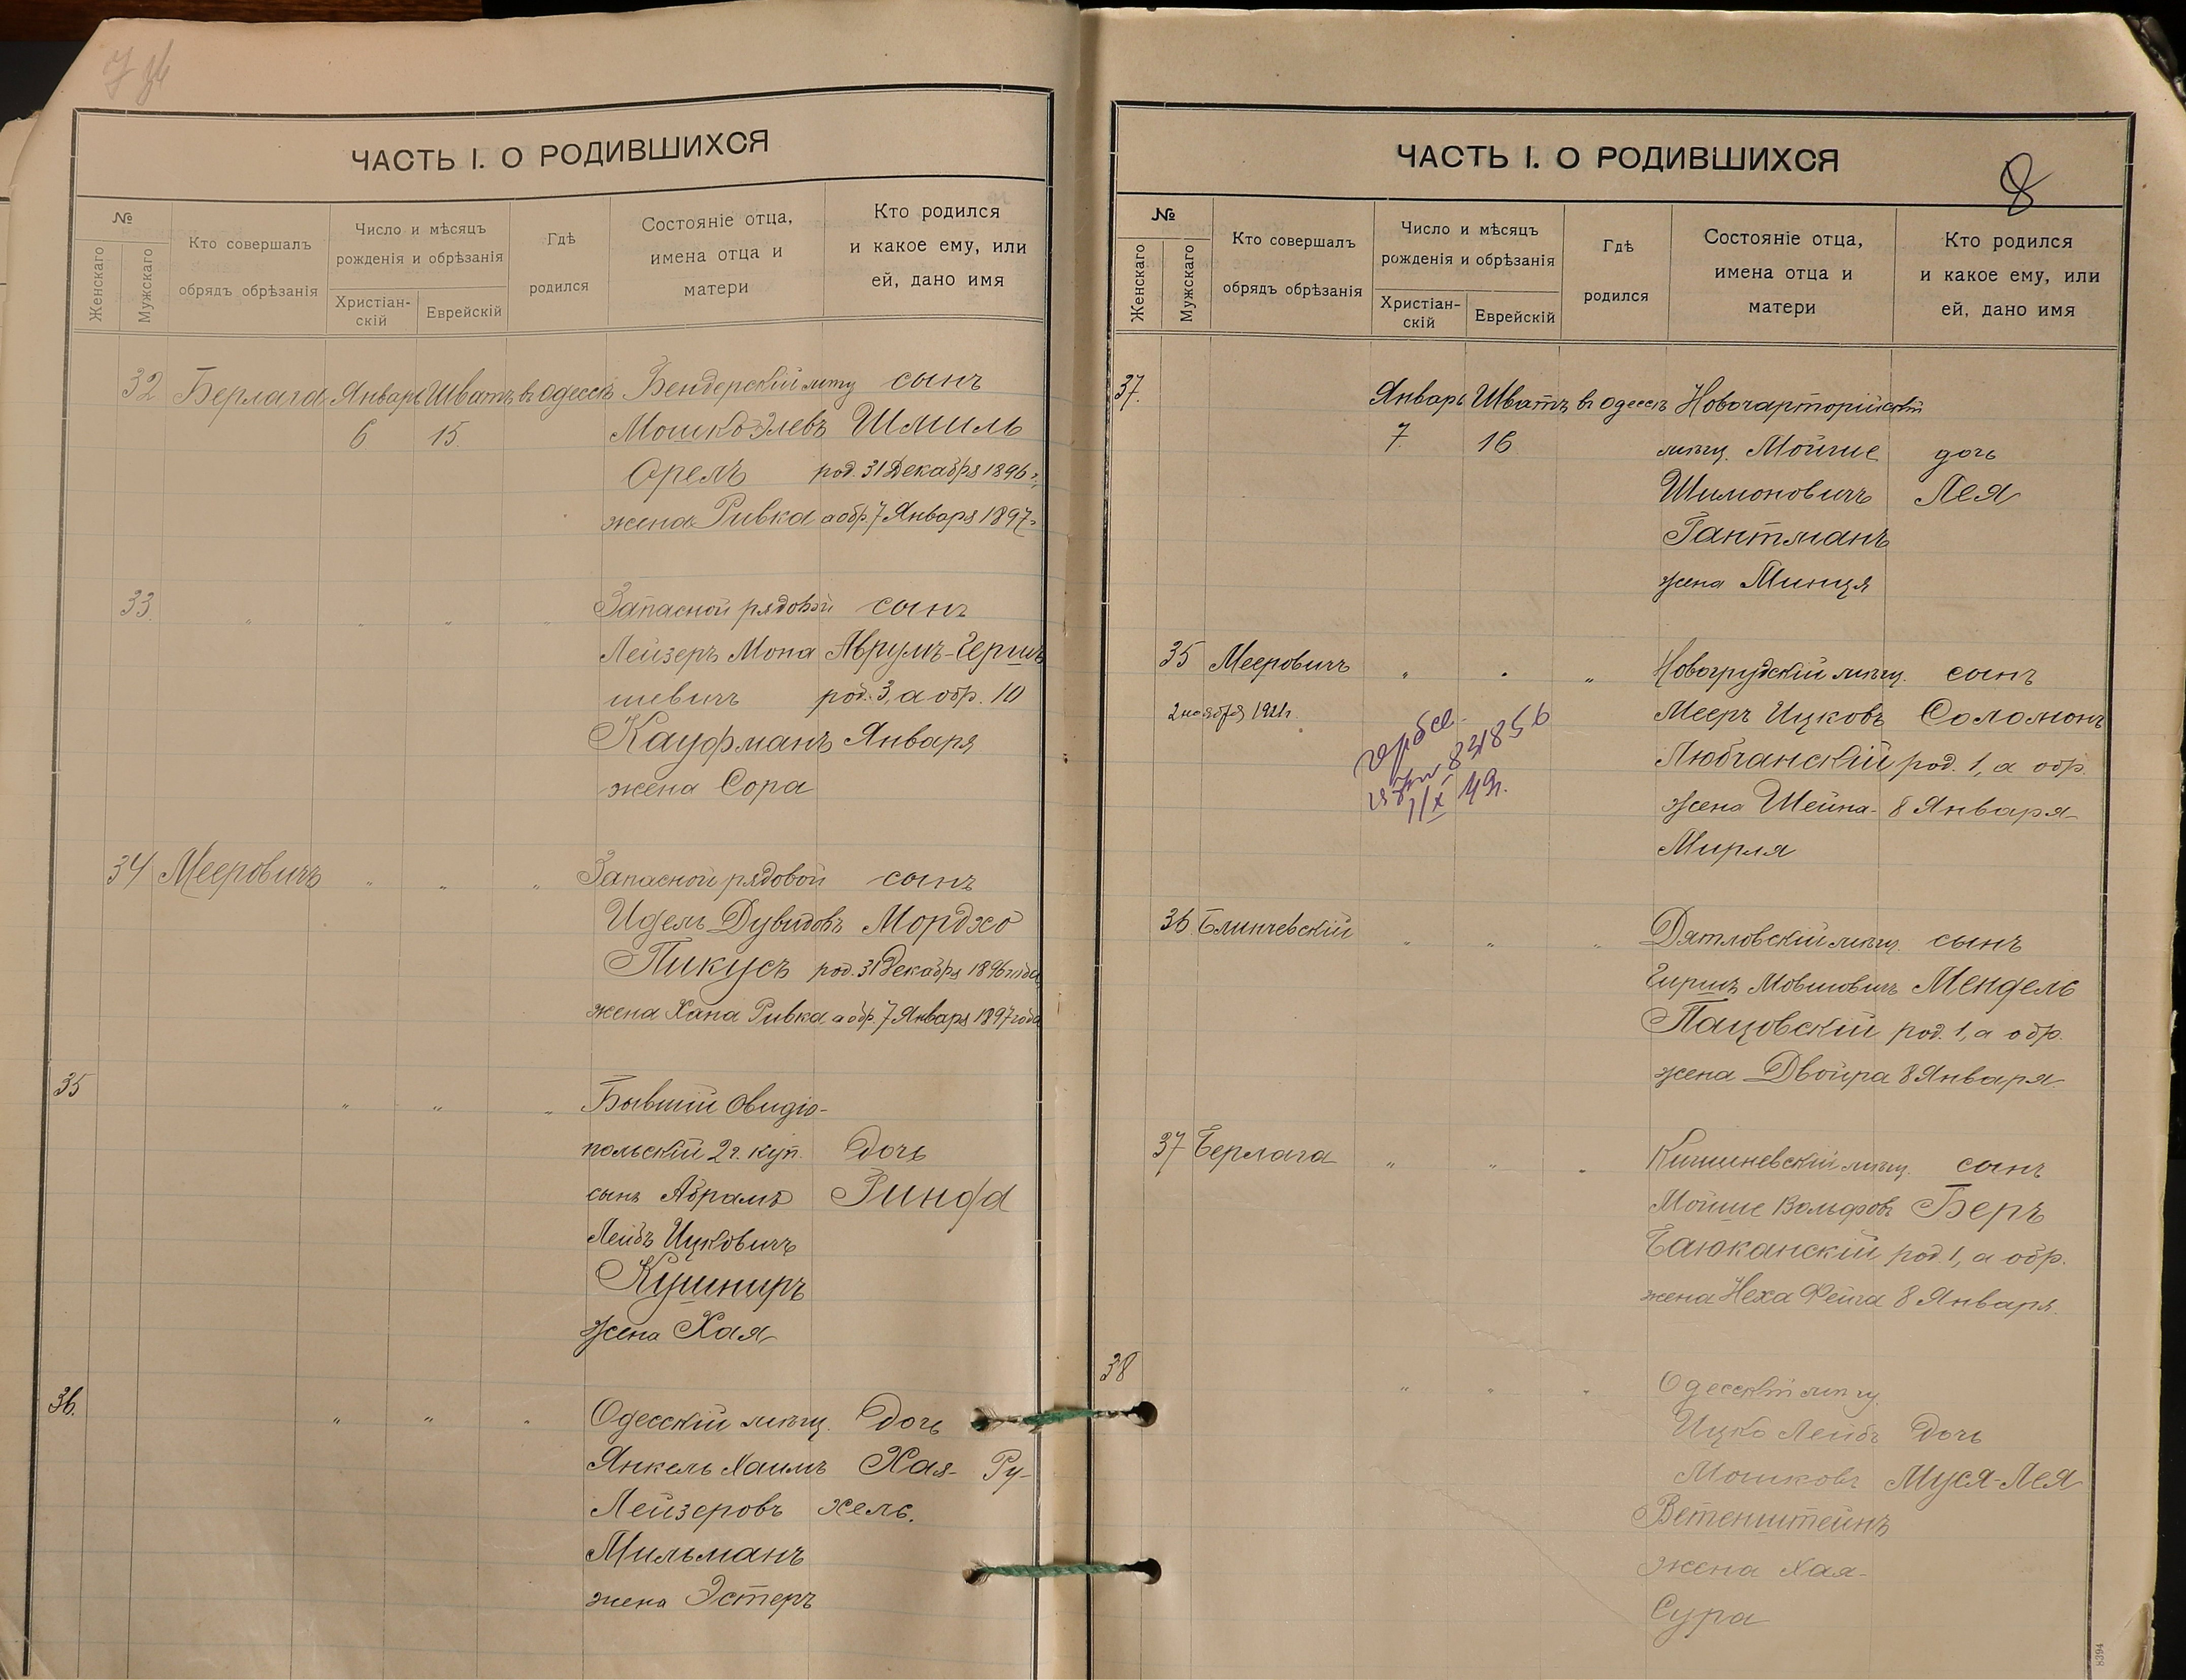 ЧАСТЬ I. О РОДИВШИХСЯ
№
Женскаго
Мужскаго
Кто совершалъ
обрядъ обрѣзанія
Число и мѣсяцъ
рожденія и обрѣзанія
Христіан-
скій
Еврейскій
Гдѣ
родился
Состояніе отца,
имена отца и
матери
Кто родился
и какое ему, или
ей, дано имя
32 Берлага Январь Шватъ въ Одессѣ Бендерскій мѣщ сынъ
6 15. Мошко Элевъ Шмиль
Орелъ род. 31 Декабря 1896 г.,
жена Ривка а обр. 7 Января 1897 г.
33 " " " " Запасной рядовой сынъ
Лейзеръ Мона Аврумъ-Герш
шевичъ род. 3, а обр. 10
Кауфманъ Января
жена Сора
34 Мееровичъ " " " Запасной рядовой сынъ
Идель Дувидовъ Мордхо
Пикусъ род. 31 Декабря 1896 года,
жена Хана Ривка а обр. 7 Января 1897 года
35 " " " Бывшій Овидіо-
польскій 2 г. куп. Дочь
сынъ Абрамъ Ринфа
Лейбъ Ицковичъ
Кушниръ
жена Хая
36. " " " Одесскій мѣщ. Дочь
Янкель Хаимъ Хая- Ру-
Лейзеровъ хель.
Мильманъ
жена Эстеръ
ЧАСТЬ I. О РОДИВШИХСЯ
8
№
Женскаго
Мужскаго
Кто совершалъ
обрядъ обрѣзанія
Число и мѣсяцъ
рожденія и обрѣзанія
Христіан-
скій
Еврейскій
Гдѣ
родился
Состояніе отца,
имена отца и
матери
Кто родился
и какое ему, или
ей, дано имя
37. Январь Шватъ въ Одессѣ Новочарторійскій
7. 16 мѣщ. Мойше дочь
Шимоновичъ Лея
Гантманъ
жена Минця
35 Мееровичъ " " " Новогрудскій мѣщ. сынъ
2 ноября 1921 г. Мееръ Ицковъ Соломонъ
831856
Любчанскій род. 1, а обр.
жена Шейна- 8 Января
Мирля
36 Блинчевскій " " " Дятловскій мѣщ. сынъ
Гиршъ Мовшовичъ Мендель
Пацовскій род. 1, а обр.
жена Двойра 8 Января
37 Берлага " " " Кишиневскій мѣщ. сынъ
Мойше Вольфовъ Беръ
Баюканскій род. 1, а обр.
жена Неха Фейга 8 Января.
38 " " " Одесскій мѣщ
Ицко Лейбъ Дочь
Мошковъ Муся-Лея
Ветенштейнъ
жена Хая-
Сура
8394